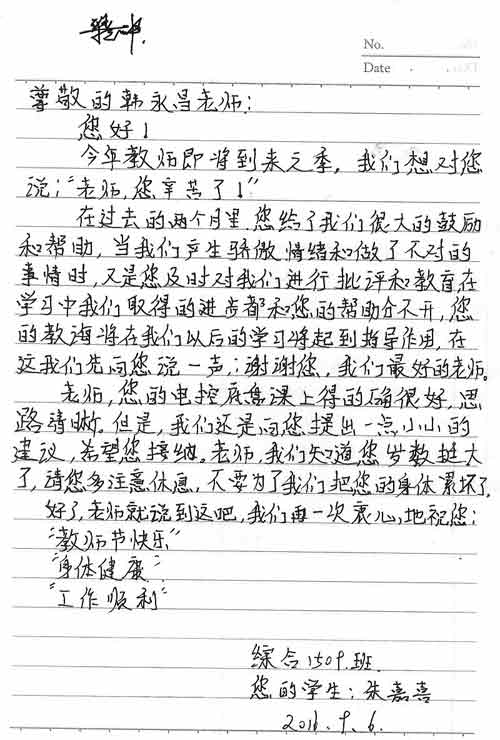 No.
Date
尊敬的韩永昌老师：
您好！
今年教师即将到来之季，我们想对您
说；“老师，您辛苦了！”
在过去的两个月里，您给了我们很大的鼓励
和帮助，当我们产生骄傲情绪和做了不对的
事情时，又是您及时对我们进行批评和教育，在
学习中我们取得的进步都和您的帮助分不开，您
的教海将在我们以后的学习将起到指导作用，在
这我们先向您说一声；谢谢您，我们最好的老师。
老师，您的电控底盘课上得的确很好，思
路清晰。但是，我们还是向您提出一点小小的
建议，希望您接纳。老师，我们知道您岁数挺大
了，请您多注意休息，不要为了我们把您的身体累坏了。
好了，老师就说到这吧，我们再一次衷心地祝您：
“教师节快乐”
“身体健康”
“工作顺利”
综合1509班
您的学生：朱嘉喜
2016.9.6.